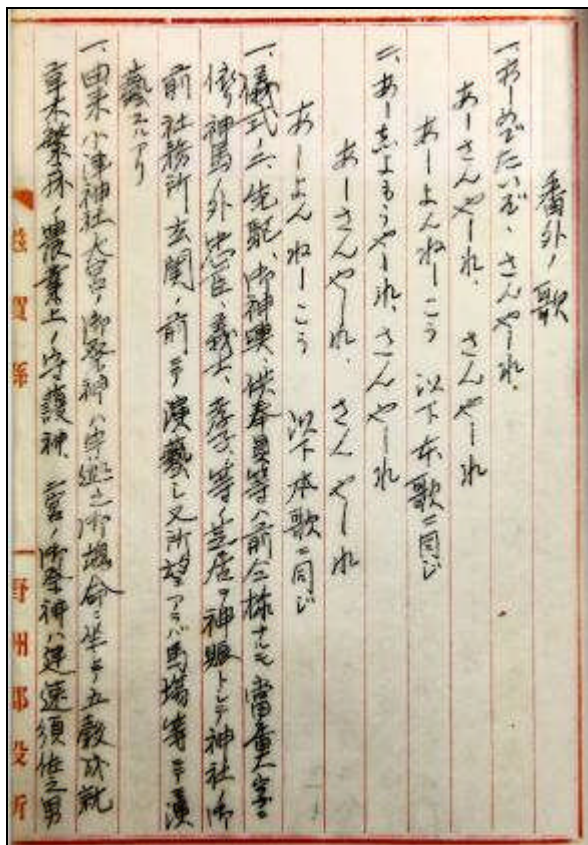 番外ノ歌
一、あーめでたいぞ、さんやーれ、
あーさんやーれ、さんやーれ
あーよんねーこう 以下本歌ニ同ジ
二、あー志よもうやーれ、さんやーれ
あーさんやーれ、さんやーれ
あーよんねーこう 以下本歌ニ同ジ
一、儀式ノ二、先駈、御神輿、供奉員等ハ前仝様ナルモ當童子ニ
依リ神馬ノ外忠臣、義士、孝子、等ノ芝居ヲ神賑トシテ神社ノ御
前社務所、玄関ノ前ニテ演藝シ又所望アラバ馬場等ニテ演
藝スルアリ
一、由来小津神社大宮ノ御祭神ハ宇迦之御魂命ニ坐シテ五穀成就
草木繁殖ノ農業上ノ守護神、二宮ノ御祭神ハ建速須佐之男
滋賀縣 野州郡役所